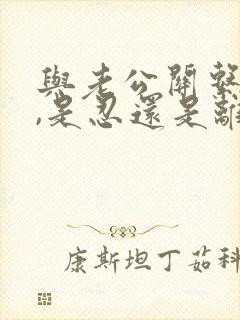 與老公關繫
,是忍還是離
康斯坦丁茹科